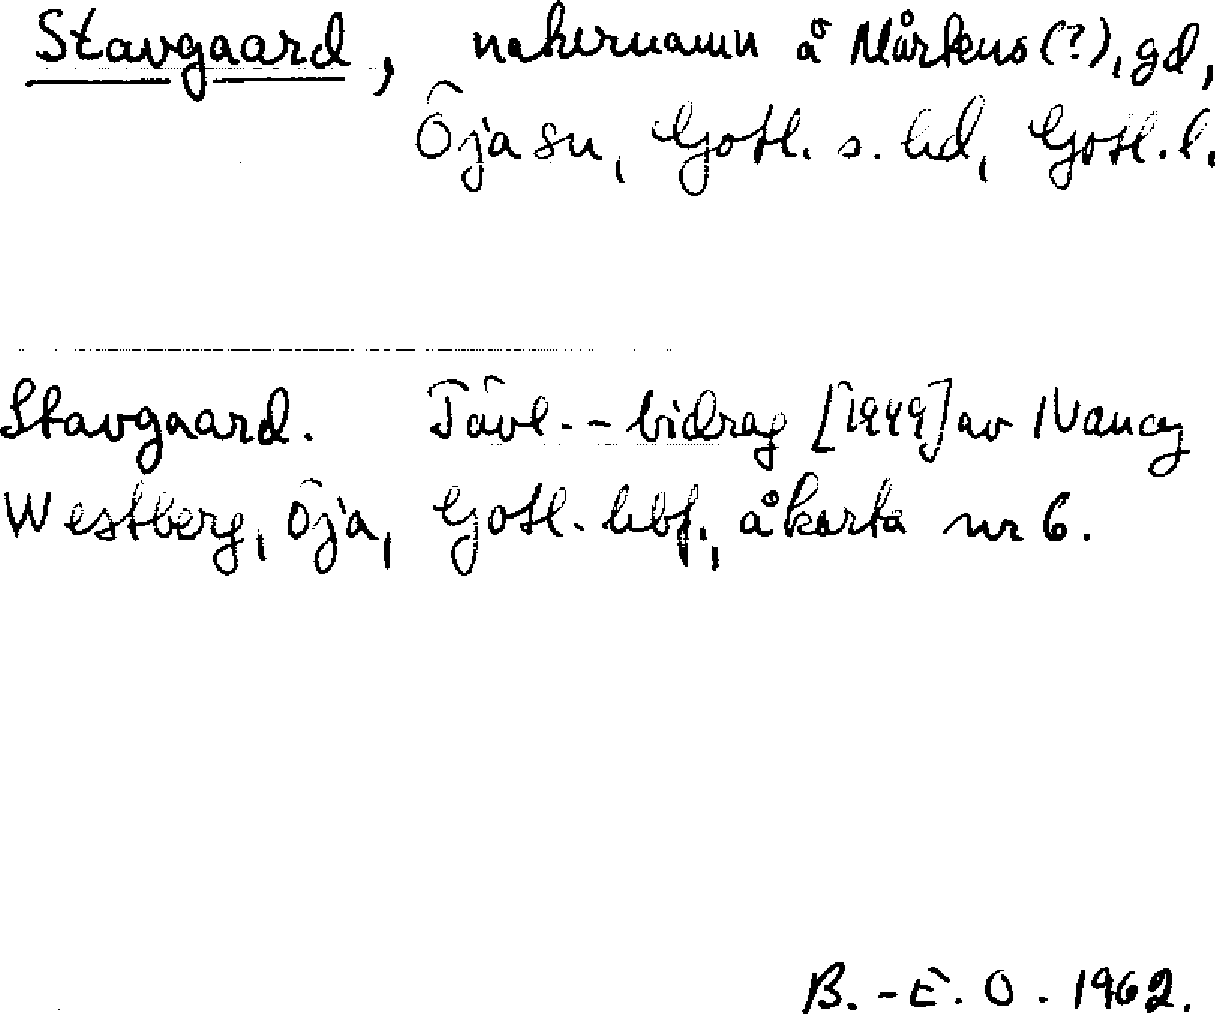 Stavgaard, nakernamn å Mårkens(?), gd,
Öja sn, Gotl. s. hd, Gotl. l.
Stavgaard. Tävl.-bidrag [1949] av Nancy
Westberg, Öja, Gotl. hbf., å karta nr 6.
B.-E. O. 1962.